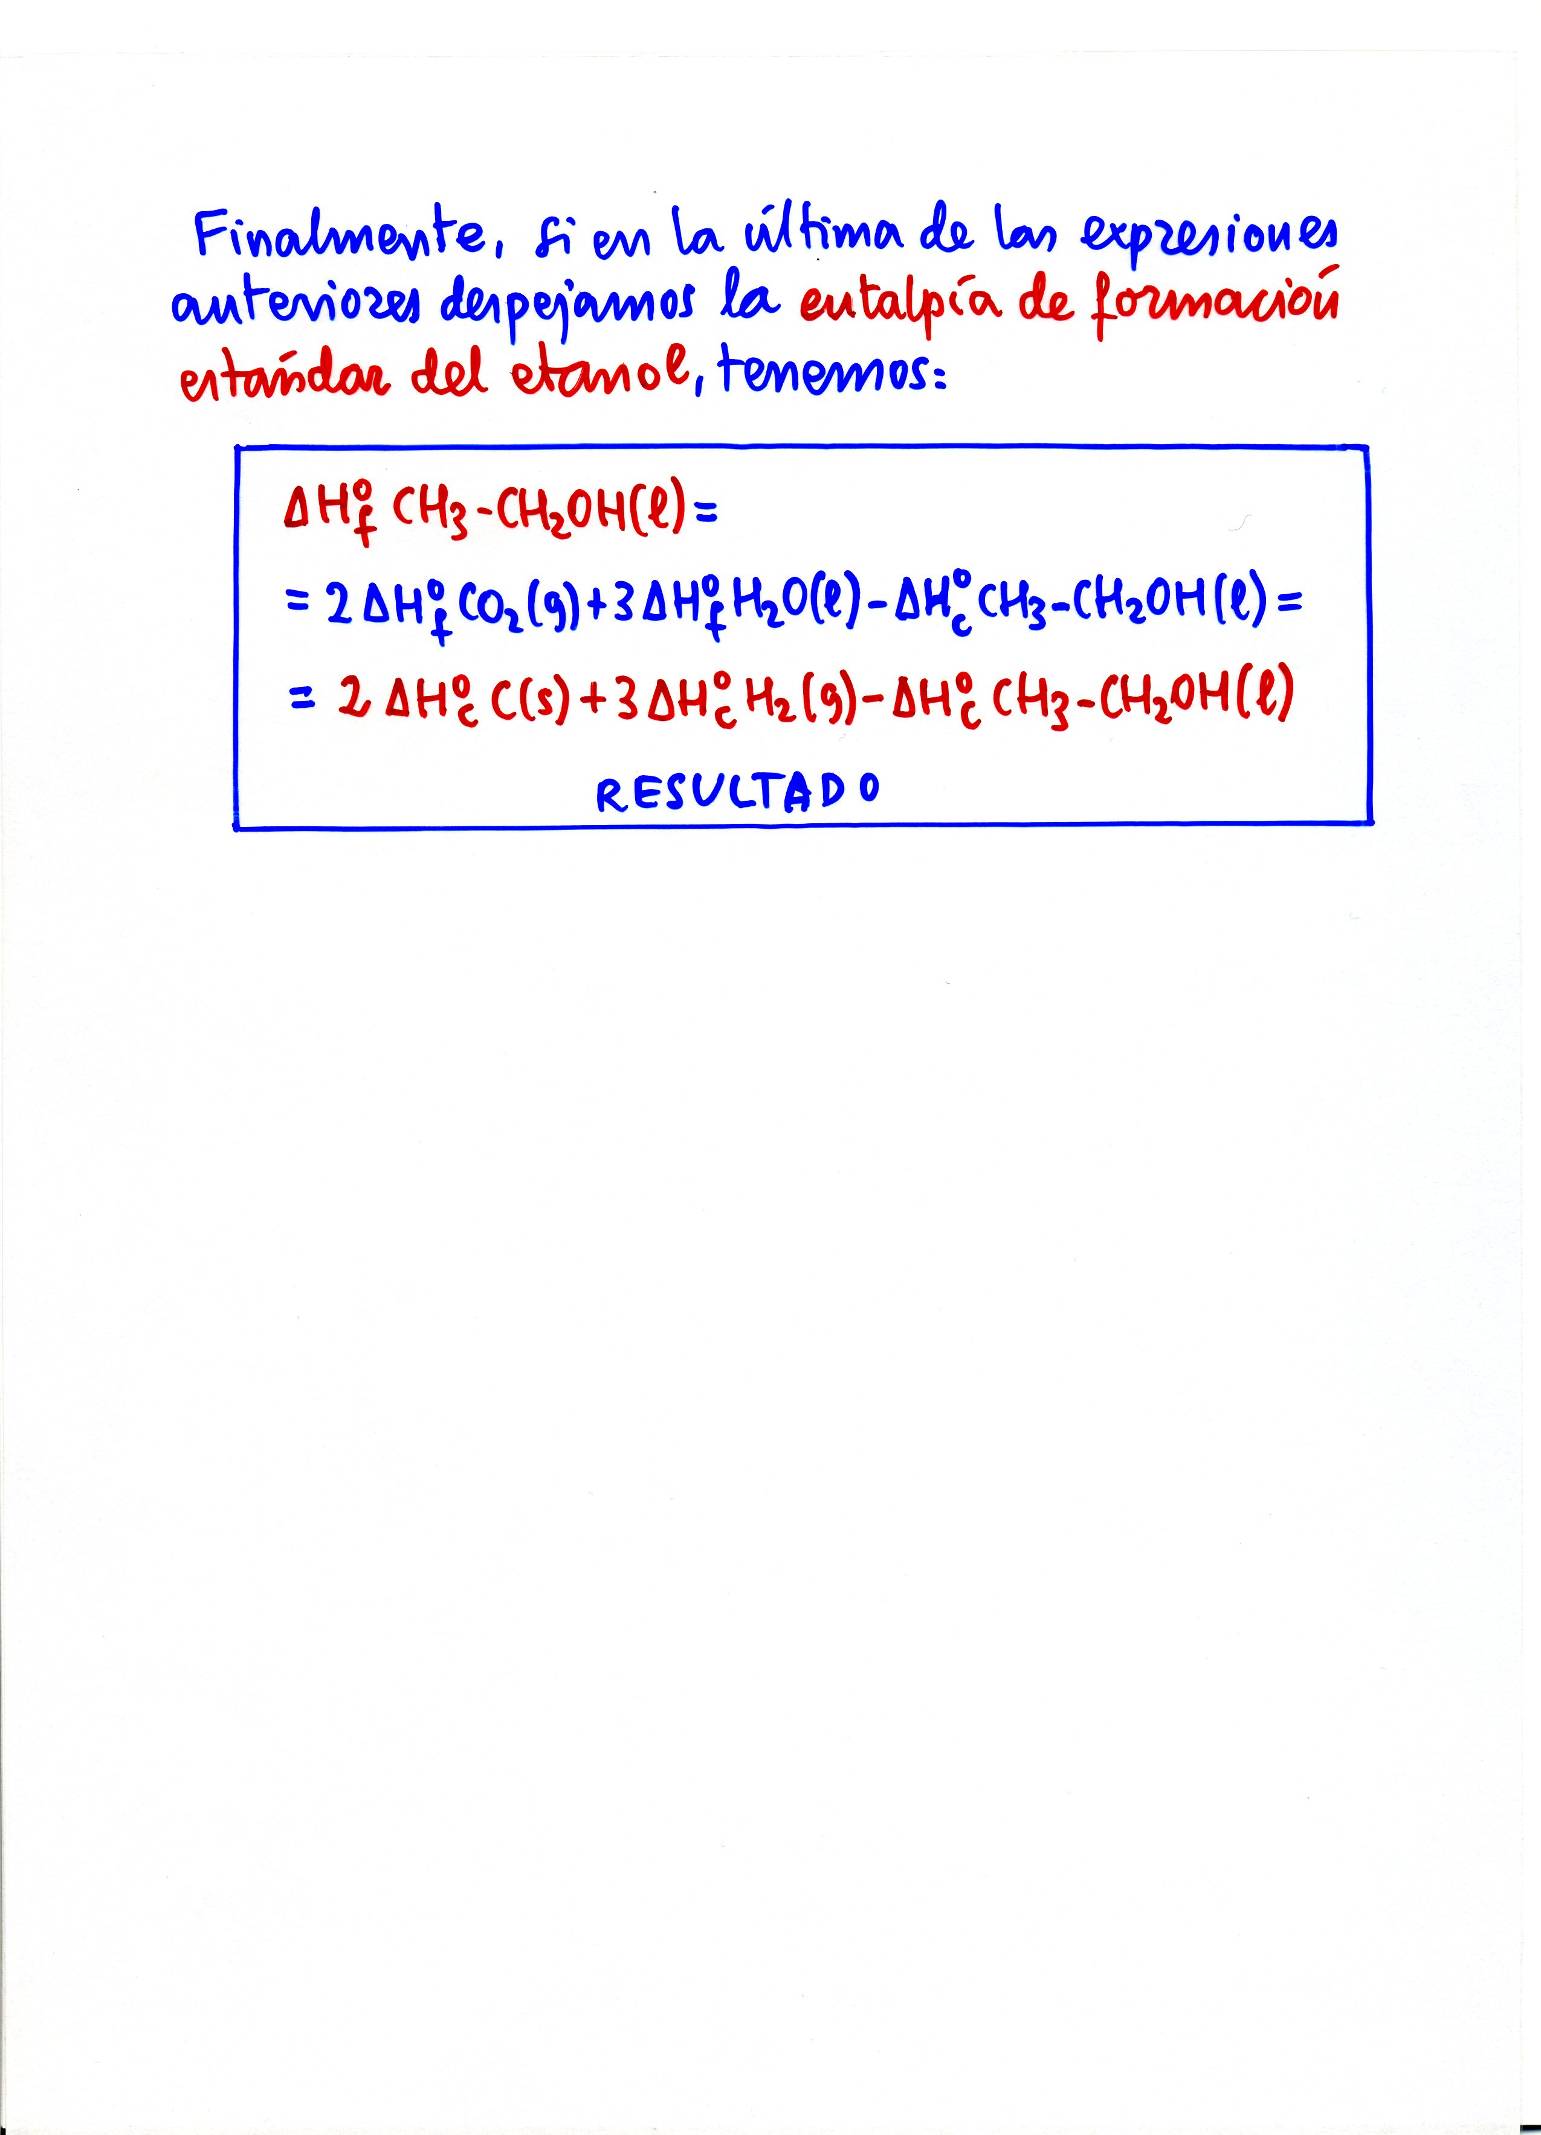 Finalmente, si en la última de las expresiones
anteriores despejamos la entalpía de formación
estándar del etanol, tenemos:
ΔH°f CH₃-CH₂OH(l)=
= 2ΔH°f CO₂(g)+3ΔH°f H₂O(l)-ΔH°c CH₃-CH₂OH(l)=
= 2ΔH°c C(s)+3ΔH°c H₂(g)-ΔH°c CH₃-CH₂OH(l)
RESULTADO